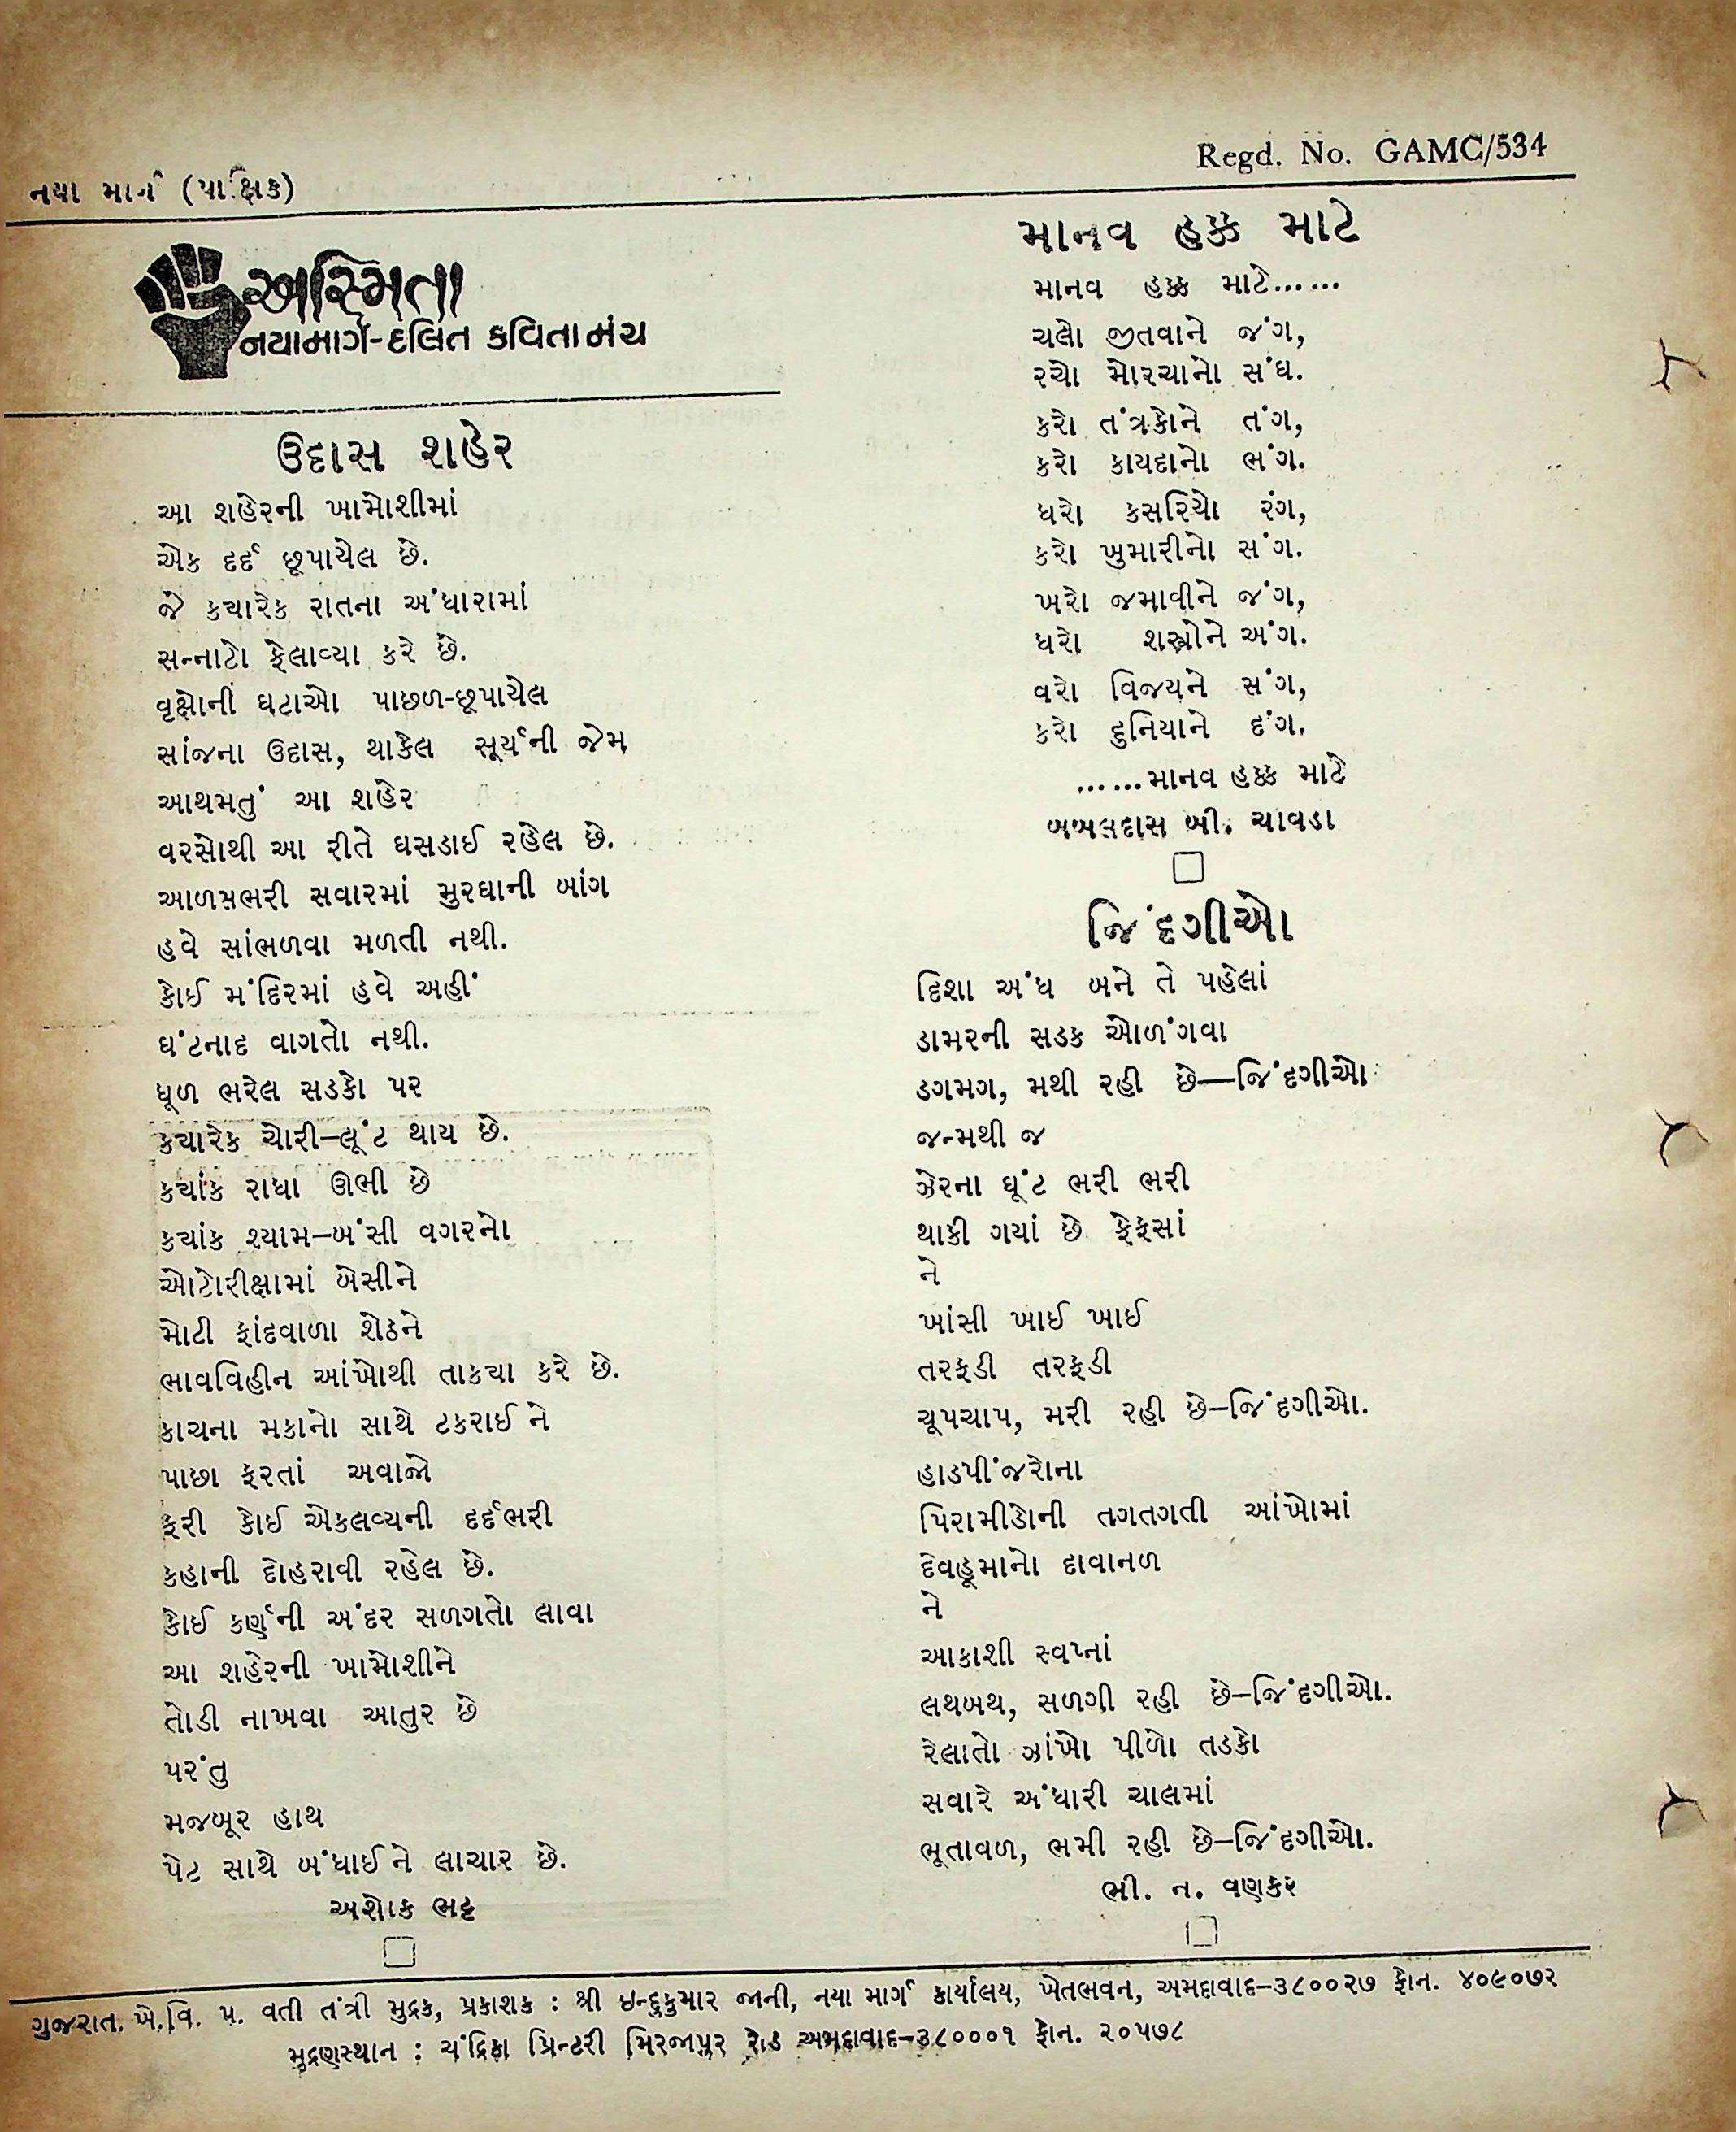 નયા માર્ગ (પાક્ષિક)
Regd. No. GAMC/534
અસ્મિતા
નયામાર્ગ-દલિત કવિતા મંચ
ઉદાસ શહેર
આ શહેરની ખામોશીમાં
એક દર્દ છૂપાયેલ છે.
જે કયારેક રાતના અંધારામાં
સન્નાટો ફેલાવ્યા કરે છે.
વૃક્ષોની ઘટાઓ પાછળ-છૂપાયેલ
સાંજના ઉદાસ, થાકેલ સૂર્યની જેમ
આથમતું આ શહેર
વરસોથી આ રીતે ઘસડાઈ રહેલ છે.
આળસભરી સવારમાં મુરઘાની બાંગ
હવે સાંભળવા મળતી નથી.
કોઈ મંદિરમાં હવે અહીં
ઘંટનાદ વાગતો નથી.
ધૂળ ભરેલ સડકો પર
કયારેક ચોરી–લૂંટ થાય છે.
કયાંક રાધા ઊભી છે
કયાંક શ્યામ–બંસી વગરનો
ઓટોરીક્ષામાં બેસીને
મોટી ફાંદવાળા શેઠને
ભાવવિહીન આંખોથી તાકયા કરે છે.
કાચના મકાનો સાથે ટકરાઈ ને
પાછા ફરતાં અવાજો
ફરી કોઈ એકલવ્યની દર્દભરી
કહાની દોહરાવી રહેલ છે.
કોઈ કર્ણની અંદર સળગતો લાવા
આ શહેરની ખામોશીને
તોડી નાખવા આતુર છે
પરંતુ
મજબૂર હાથ
પેટ સાથે બંધાઈ ને લાચાર છે.
અશોક ભટ્ટ
માનવ હક્ક માટે
માનવ હક્ક માટે......
ચલો જીતવાને જંગ,
રચો મોરચાનો સંઘ.
કરો તંત્રકોને તંગ,
કરો કાયદાનો ભંગ.
ધરો કસરિયો રંગ,
કરો ખુમારીનો સંગ.
ખરો જમાવીને જંગ,
ધરો શસ્ત્રોને અંગ.
વરો વિજયને સંગ,
કરો દુનિયાને દંગ.
......માનવ હક્ક માટે
બબલદાસ બી. ચાવડા
જિંદગીઓ
દિશા અંધ બને તે પહેલાં
ડામરની સડક ઓળંગવા
ડગમગ, મથી રહી છે—જિંદગીઓ
જન્મથી જ
ઝેરના ઘૂંટ ભરી ભરી
થાકી ગયાં છે ફેફસાં
ને
ખાંસી ખાઈ ખાઈ
તરફડી તરફડી
ચૂપચાપ, મરી રહી છે–જિંદગીઓ.
હાડપીંજરોના
પિરામીડોની તગતગતી આંખોમાં
દેવહૂમાનો દાવાનળ
ને
આકાશી સ્વપ્નાં
લથબથ, સળગી રહી છે–જિંદગીઓ.
રેલાતો ઝાંખો પીળો તડકો
સવારે અંધારી ચાલમાં
ભૂતાવળ, ભમી રહી છે–જિંદગીઓ.
ભી. ન. વણકર
ગુજરાત. ખે.વિ. પ. વતી તંત્રી મુદ્રક, પ્રકાશક : શ્રી ઇન્દુકુમાર જાની, નયા માર્ગ કાર્યાલય, ખેતભવન, અમદાવાદ–૩૮૦૦૨૭ ફોન. ૪૦૯૦૭૨
મુદ્રણસ્થાન : ચંદ્રિકા પ્રિન્ટરી મિરજાપુર રોડ અમદાવાદ–૩૮૦૦૦૧ ફોન. ૨૦૫૭૮